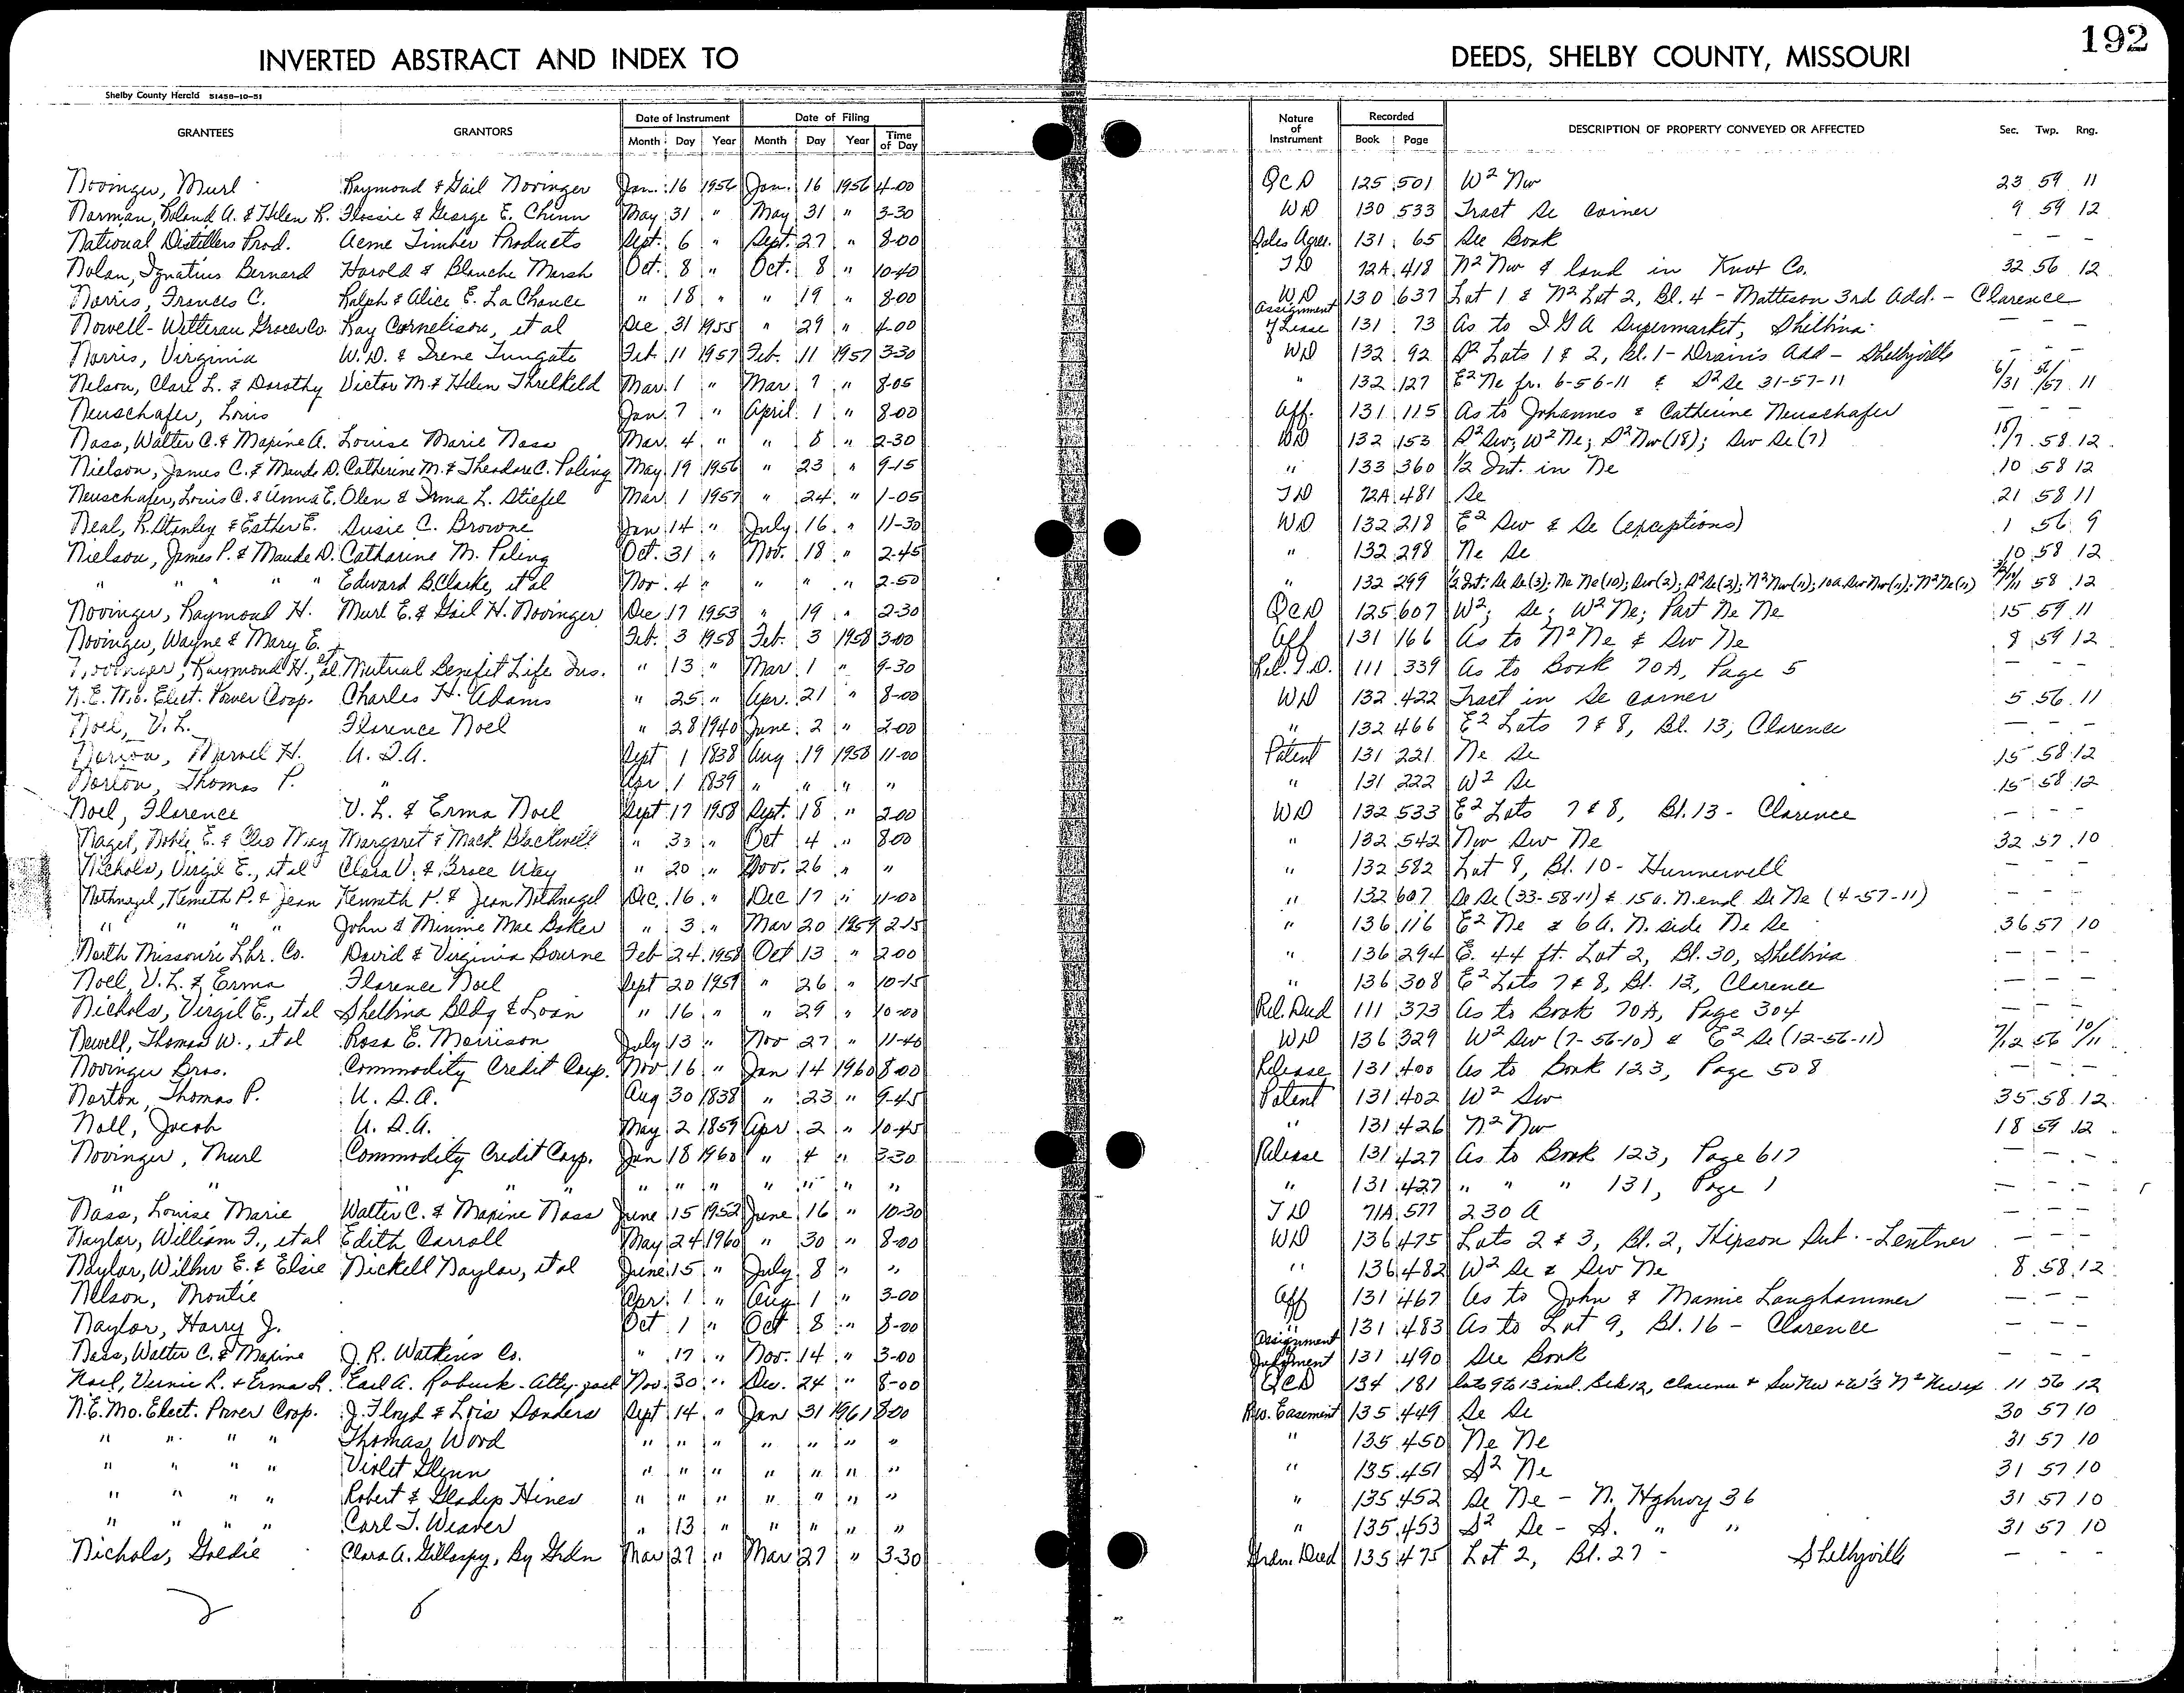 192
INVERTED ABSTRACT AND INDEX TO DEEDS, SHELBY COUNTY, MISSOURI
Shelby County Herald 51458-10-51
GRANTEES GRANTORS Date of Instrument Date of Filing Nature of Instrument Recorded DESCRIPTION OF PROPERTY CONVEYED OR AFFECTED Sec. Twp. Rng.
Month Day Year Month Day Year Time of Day Book Page
Novinger, Murl Raymond & Gail Novinger Jan. 16 1956 Jan. 16 1956 4-00 QCD 125 501 W² Nw 23 59 11
Norman, Roland A. & Helen R. Flossie & George E. Chinn May 31 " May 31 " 3-30 WD 130 533 Tract Se corner 9 59 12
National Distillers Prod. Acme Timber Products Sept. 6 " Sept. 27 " 8-00 Sales Agree. 131 65 See Book — — —
Nolan, Ignatius Bernard Harold & Blanche Marsh Oct. 8 " Oct. 8 " 10-40 TD 72A 418 N² Nw & land in Knox Co. 32 56 12
Norris, Frances C. Ralph & Alice E. La Chance " 18 " " 19 " 8-00 WD 130 637 Lot 1 & N² Lot 2, Bl. 4 - Matteson 3rd Add. - Clarence
Nowell-Witterau Grocer Co Ray Cornelison, et al Dec 31 1955 " 29 " 4-00 Assignment of Lease 131 73 As to IGA Supermarket, Shelbina — — —
Norris, Virginia W.D. & Irene Tungate Feb. 11 1957 Feb. 11 1957 3-30 WD 132 92 S² Lots 1 & 2, Bl. 1 - Drain's Add - Shelbyville — — —
Nelson, Clare L. & Dorothy Victor M. & Helen Threlkeld Mar. 1 " Mar 7 " 8-05 " 132 127 E² Ne fr. 6-56-11 & S² Se 31-57-11 6/31 56/57 11
Neuschafer, Louis Jan 7 " April 1 " 8-00 Aff. 131 115 As to Johannes & Catherine Neuschafer — — —
Nass, Walter C. & Maxine A. Louise Marie Nass Mar. 4 " " 8 " 2-30 WD 132 153 S² Sw; W² Ne; S² Nw (18); Sw Se (7) 18/7 58 12
Nielson, James C. & Maude D. Catherine M. & Theodore C. Poling May 19 1956 " 23 " 9-15 " 133 360 ½ Int. in Ne 10 58 12
Neuschafer, Louis C. & Anna E. Olen & Irma L. Stiefel Mar 1 1957 " 24 " 1-05 TD 72A 481 Se 21 58 11
Neal, R. Stanley & Esther E. Susie C. Browne Jan 14 " July 16 " 11-30 WD 132 218 E² Sw & Se (exceptions) 1 56 9
Nielson, James P. & Maude D. Catharine M. Poling Oct. 31 " Nov. 18 " 2-45 " 132 298 Ne Se 10 58 12
" " " " " Edward B. Clarke, et al Nov 4 " " " " 2-50 " 132 299 ½ Int: Se Se (3); Ne Ne (10); Sw (2); S² Se (2); N² Nw (11); 10a Sw Nw (11); N² Ne (11) 58 12
Novinger, Raymond H. Murl E. & Gail H. Novinger Dec 17 1953 " 19 " 2-30 QCD 125 607 W²; Se; W² Ne; Part Ne Ne 15 59 11
Novinger, Wayne & Mary E. Feb. 3 1958 Feb. 3 1958 3-00 Aff 131 166 As to N² Ne & Sw Ne 8 59 12
Novinger, Raymond H., et al Mutual Benefit Life Ins. " 13 " Mar 1 " 9-30 Rel. T.D. 111 339 As to Book 70A, Page 5 — — —
N.E. Mo. Elect. Power Coop. Charles H. Adams " 25 " Apr. 21 " 8-00 WD 132 422 Tract in Se corner 5 56 11
Noel, V. L. Florence Noel " 28 1940 June 2 " 2-00 " 132 466 E² Lots 7 & 8, Bl. 13, Clarence — — —
Norton, Marvel H. U.S.A. Sept 1 1838 Aug 19 1958 11-00 Patent 131 221 Ne Se 15 58 12
Norton, Thomas P. " Apr 1 1839 " " " " " 131 222 W² Se 15 58 12
Noel, Florence V. L. & Erma Noel Sept 17 1958 Sept. 18 " 2-00 WD 132 533 E² Lots 7 & 8, Bl. 13 - Clarence — — —
Nagel, Noble E. & Cleo May Margaret & Mack Blackwell " 30 " Oct 4 " 8-00 " 132 542 Nw Sw Ne 32 57 10
Nichols, Virgil E., et al Clara V. & Bruce Way " 20 " Nov. 26 " " " 132 582 Lot 8, Bl. 10 - Hunnewell — — —
Nothnagel, Kenneth P. & Jean Kenneth P. & Jean Nothnagel Dec. 16 " Dec 17 " 11-00 " 132 607 Se Se (33-58-11) & 15a. N. end Se Ne (4-57-11) — — —
" " " " John & Minnie Mae Baker " 3 " Mar 20 1959 2-15 " 136 116 E² Ne & 6A. N. side Ne Se 36 57 10
North Missouri Lbr. Co. David & Virginia Bourne Feb 24 1958 Oct 13 " 2-00 " 136 294 E. 44 ft. Lot 2, Bl. 30, Shelbina — — —
Noel, V. L. & Erma Florence Noel Sept 20 1959 " 26 " 10-15 " 136 308 E² Lots 7 & 8, Bl. 13, Clarence — — —
Nichols, Virgil E., et al Shelbina Bldg & Loan " 16 " " 29 " 10-00 Rel. Deed 111 373 As to Book 70A, Page 304 — — —
Newell, Thomas W., et al Rosa E. Morrison July 13 " Nov 27 " 11-40 WD 136 329 W² Sw (7-56-10) & E² Se (12-56-11) 7/12 56 10/11
Novinger Bros. Commodity Credit Corp. Nov 16 " Jan 14 1960 8-00 Release 131 400 As to Book 123, Page 508 — — —
Norton, Thomas P. U.S.A. Aug 30 1838 " 23 " 9-45 Patent 131 402 W² Sw 35 58 12
Noll, Jacob U.S.A. May 2 1859 Apr 2 " 10-45 " 131 426 N² Nw 18 59 12
Novinger, Murl Commodity Credit Corp. Jan 18 1960 " 4 " 3-30 Release 131 427 As to Book 123, Page 617 — — —
" " " " " " " " " " " " " 131 427 " " " 131, Page 1 — — —
Nass, Louise Marie Walter C. & Maxine Nass June 15 1952 June 16 " 10-30 TD 71A 577 230 A — — —
Naylor, William F., et al Edith Carroll May 24 1960 " 30 " 8-00 WD 136 475 Lots 2 & 3, Bl. 2, Hipson Sub. - Lentner — — —
Naylor, Wilbur E. & Elsie Nickell Naylor, et al June 15 " July 8 " " " 136 482 W² Se & Sw Ne 8 58 12
Nelson, Montie Apr. 1 " Aug 1 " 3-00 Aff 131 467 As to John & Mamie Langhammer — — —
Naylor, Harry J. Oct 1 " Oct 8 " 8-00 " 131 483 As to Lot 9, Bl. 16 - Clarence — — —
Nass, Walter C. & Maxine J. R. Watkins Co. " 17 " Nov. 14 " 3-00 Assignment Judgment 131 490 See Book — — —
Noel, Vernie L. & Erma L. Earl A. Robuck - Atty-fact Nov. 30 " Dec. 24 " 8-00 QCD 134 181 Lots 9 to 13 incl. Blk 12, Clarence + Sw Nw + W⅓ N² Nw ex 11 56 12
N.E. Mo. Elect. Power Coop. J. Floyd & Lois Sanders Sept 14 " Jan 31 1961 8-00 Rw. Easement 135 449 Se Se 30 57 10
" " " " Thomas Word " " " " " " " " 135 450 Ne Ne 31 57 10
" " " " Violet Glenn " " " " " " " " 135 451 S² Ne 31 57 10
" " " " Robert & Gladys Hines " " " " " " " " 135 452 Se Ne - N. Hghwy 36 31 57 10
" " " " Carl T. Weaver " 13 " " " " " " 135 453 S² Se - S. " " 31 57 10
Nichols, Goldie Clara A. Gillaspy, By Grdn Mar 27 " Mar 27 " 3-30 Grdn. Deed 135 475 Lot 2, Bl. 27 - Shelbyville — — —